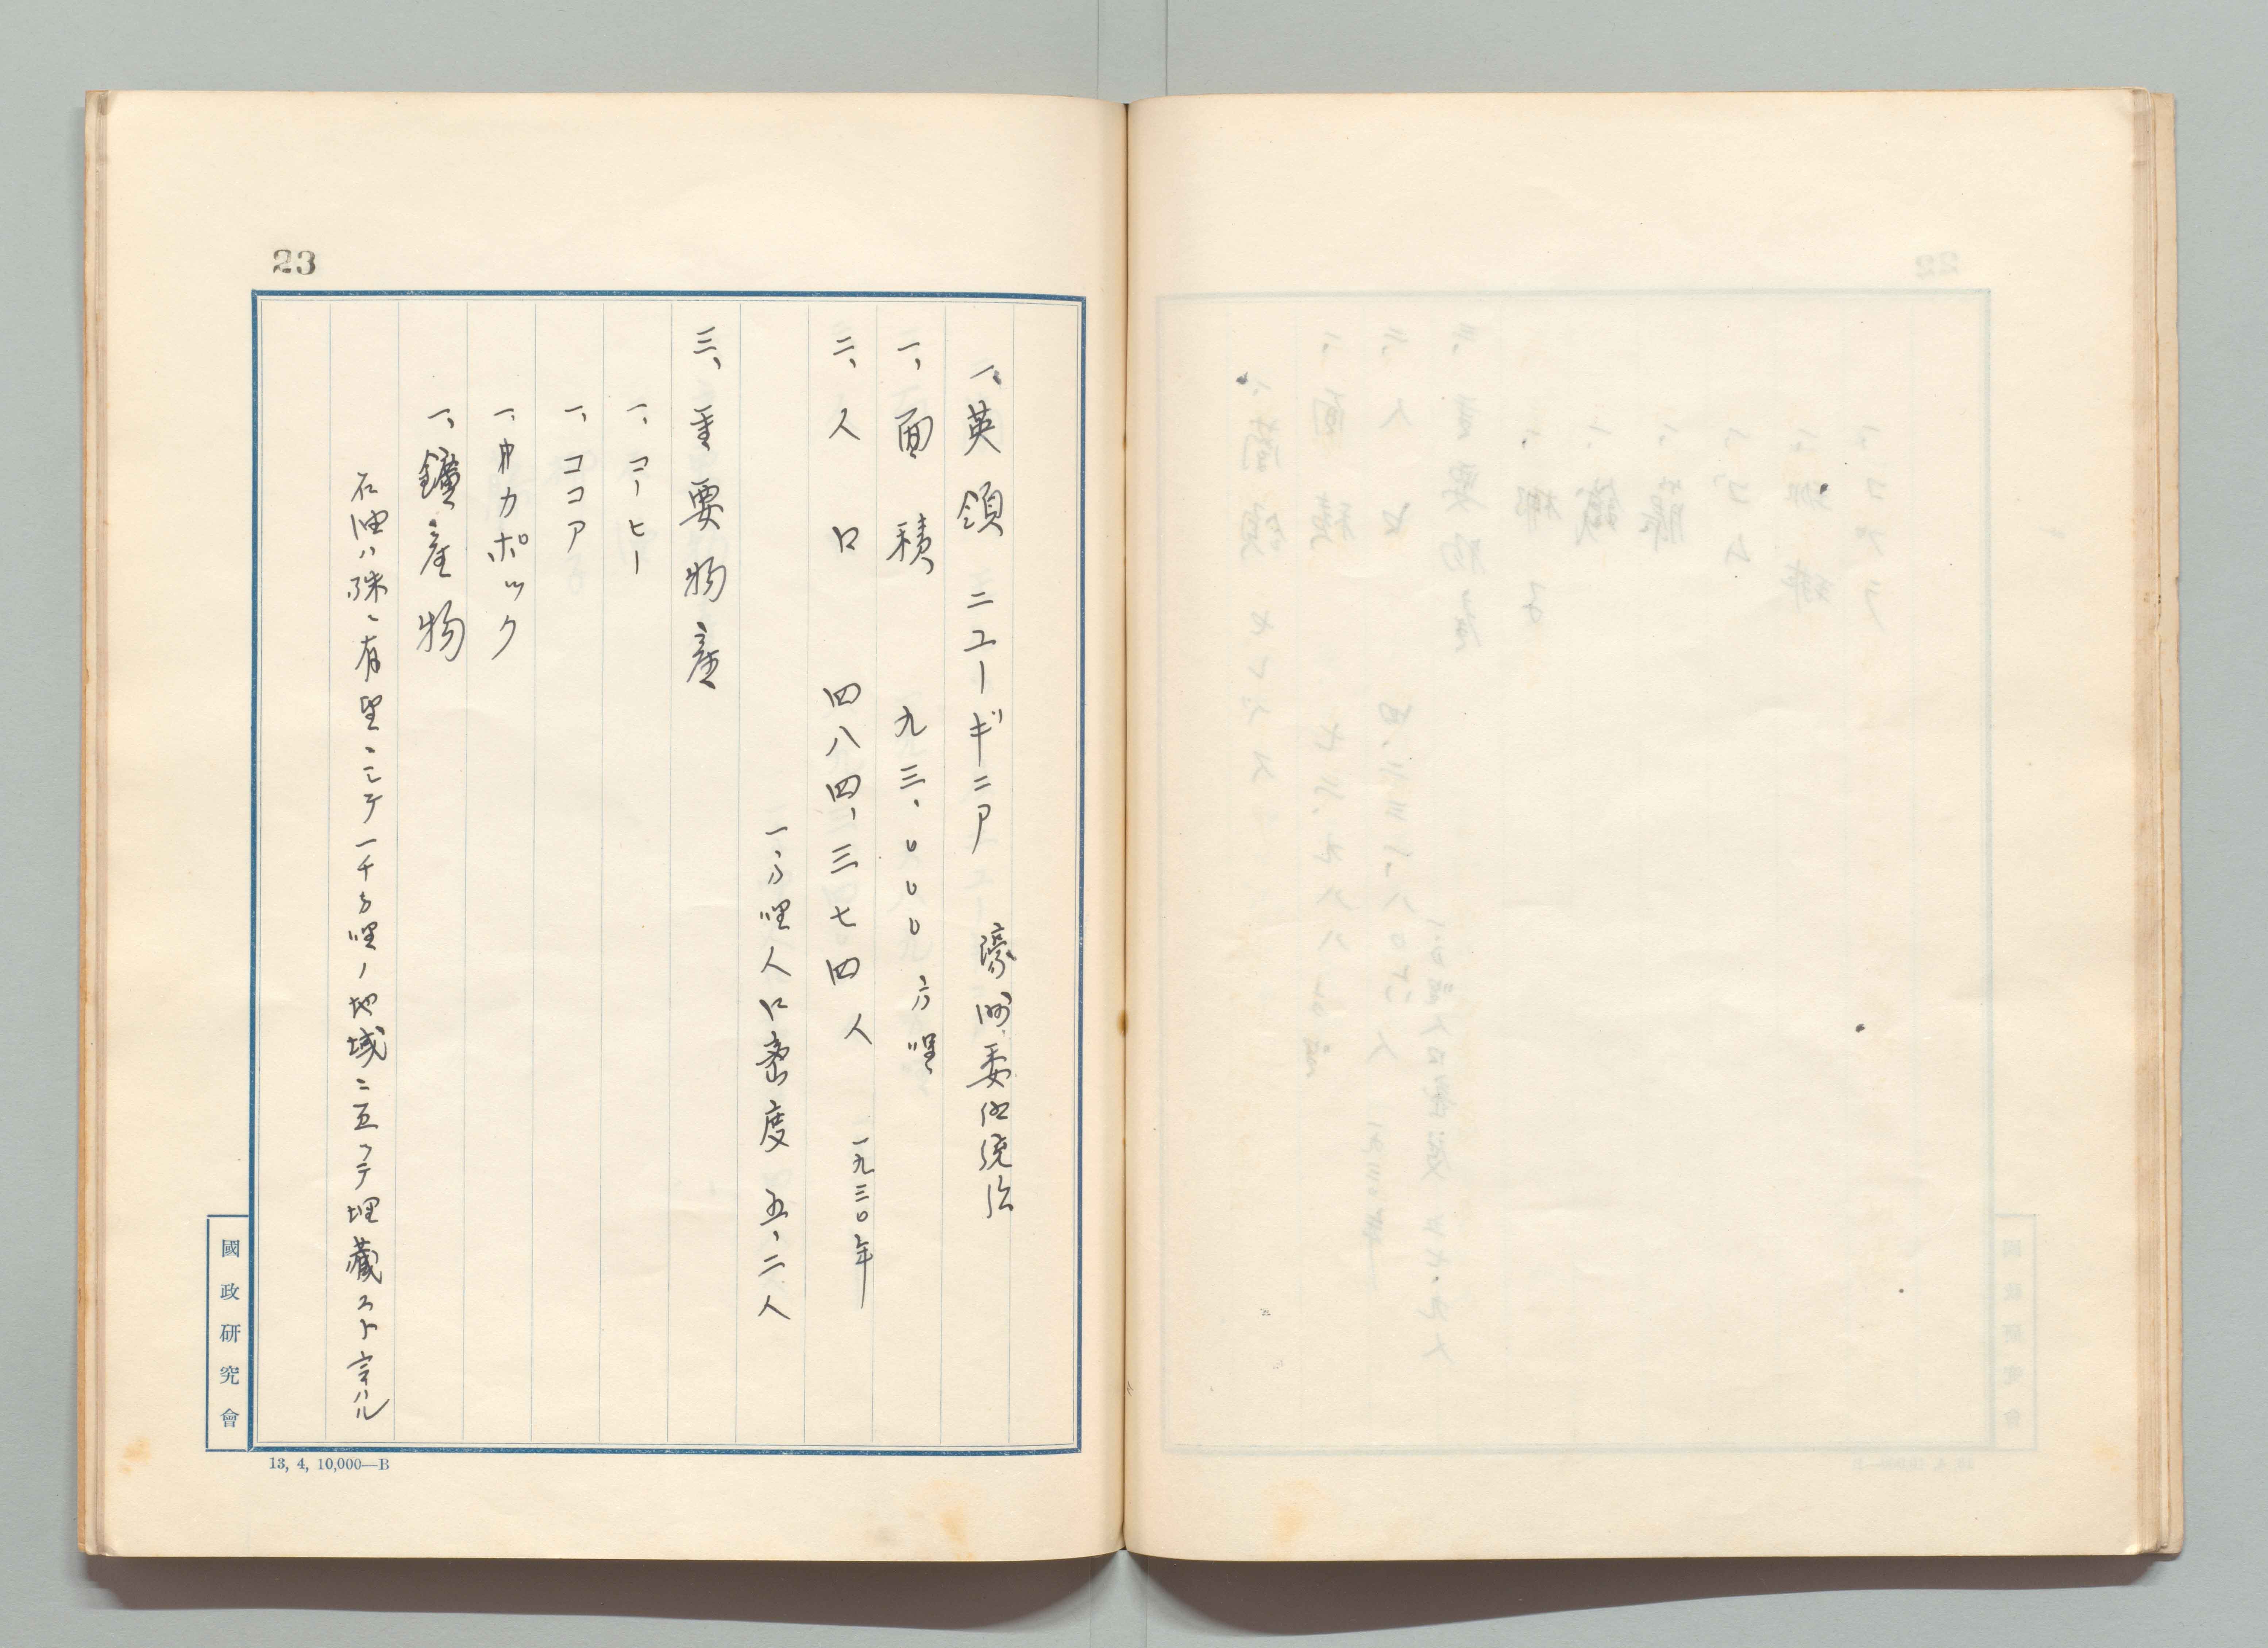 23
一、英領ニューギニア 濠洲委任統治
一、面積 九三、〇〇〇方哩
二、人口 四八四、三七四人 一九三〇年
一方哩人口密度 五、二人
三、重要物産
一、コーヒー
一、ココア
一、カポック
一、鑛産物
石油ハ殊ニ有望ニシテ一千方哩ノ地域ニ亙ッテ埋藏スト言ハル
國政研究會
13, 4, 10,000—B